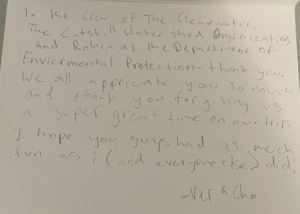 To the Crew of The Clearwater,
The Catskill Watershed Orginization,
and Robin at the Department of
Enviermental Protection - thank you.
We all appriciate you so much
and thank you for giving us
a super great time on our trip.
I hope you guys had as much
fun as i (and everyone else) did.